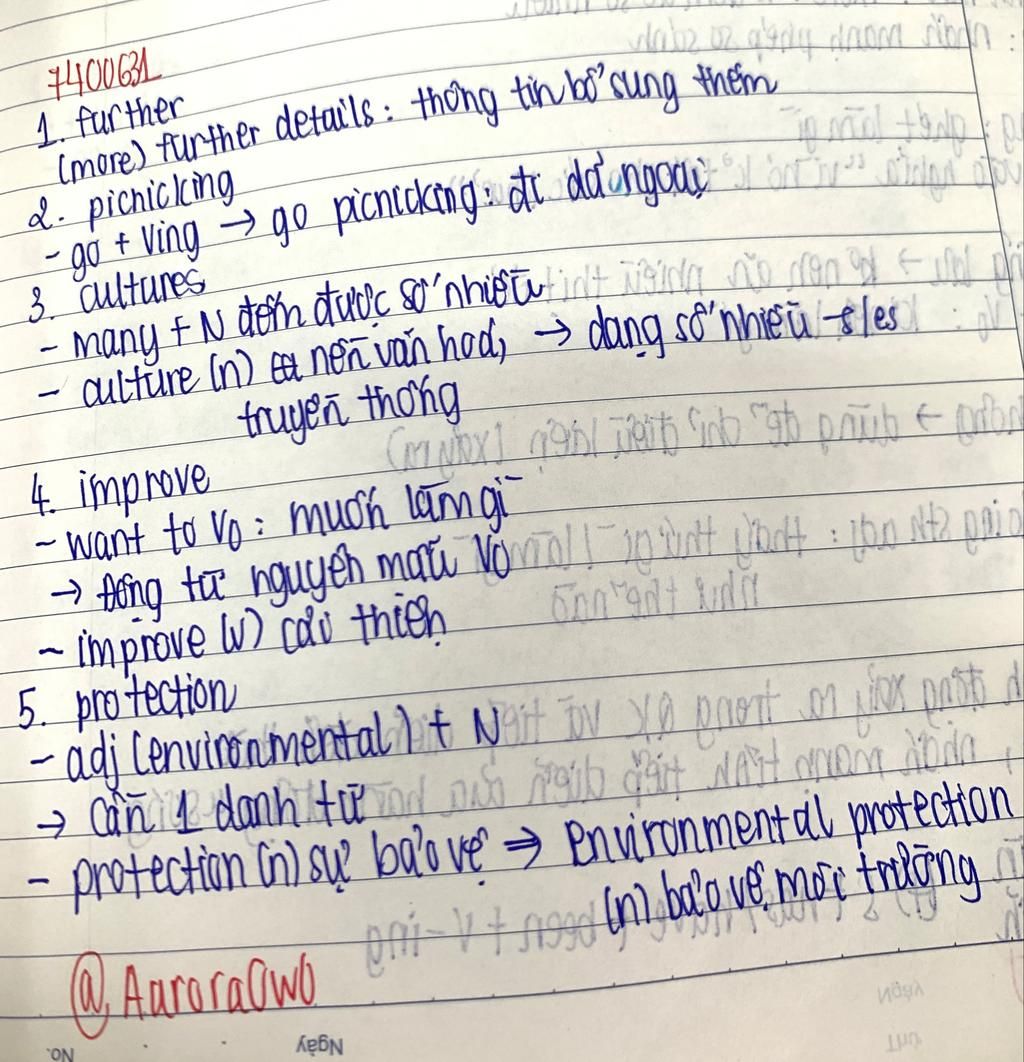 7400631
1. further
(more) further details : thông tin bổ sung thêm
2. picnicking
- go + Ving → go picnicking : đi dã ngoại
3. cultures
- many + N đếm được số nhiều
- culture (n) nền văn hoá, → dạng số nhiều -s/es
truyền thống
4. improve
- want to V0 : muốn làm gì
→ Động từ nguyên mẫu V0
- improve (v) cải thiện
5. protection
- adj (environmental) + N
→ Cần 1 danh từ
- protection (n) sự bảo vệ ⇒ environmental protection
(n) bảo vệ môi trường
@AuroraOwO
No.
Ngày